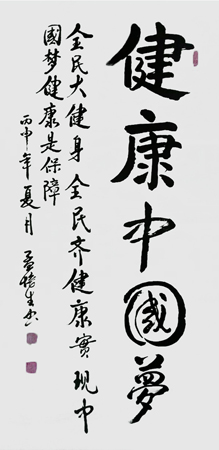 健康中國夢
全民大健身 全民齐健康實現中
國梦健康是保障
丙申年夏月